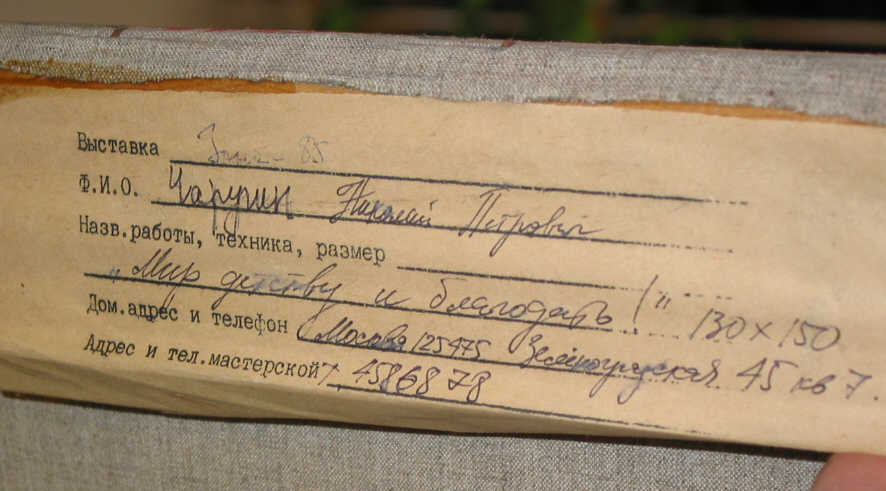 Выставка 85
Ф.И.О. Чарухин Николай Петрович
Назв.работы, техника, размер
„Мир детству и благодать!" 130×150
Дом.адрес и телефон Москва 125475 Зеленоградская 45 кв 7.
Адрес и тел.мастерской 4586878